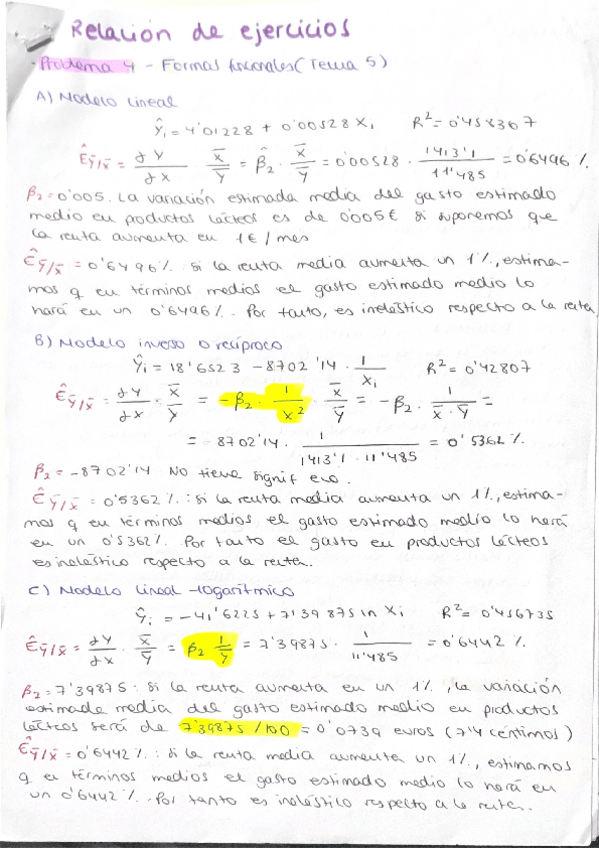 Relación de ejercicios
Problema 4 - Formas funcionales (Tema 5)
A) Modelo lineal
Ŷi = 4'01228 + 0'00528 Xi   R² = 0'458367
Ê Ȳ/X̄ = ∂Y/∂X · X̄/Ȳ = β̂2 · X̄/Ȳ = 0'00528 · 1413'1/11'485 = 0'6496 %
β2 = 0'005. La variación estimada media del gasto estimado
medio en productos lácteos es de 0'005€ si suponemos que
la renta aumenta en 1€/mes
Ê Ȳ/X̄ = 0'6496%. Si la renta media aumenta un 1%, estima-
mos q en términos medios el gasto estimado medio lo
hará en un 0'6496%. Por tanto, es inelástico respecto a la renta
B) Modelo inverso o recíproco
Ŷi = 18'6523 - 8702'14 · 1/Xi   R² = 0'42807
Ê Ȳ/X̄ = ∂Y/∂X · X̄/Ȳ = -β2 · 1/X² · X̄/Ȳ = -β2 · 1/X̄·Ȳ =
= -8702'14 · 1/1413'1 · 11'485 = 0'5362 %
β2 = -8702'14 No tiene signif eco.
Ê Ȳ/X̄ = 0'5362%: Si la renta media aumenta un 1%, estima-
mos q en términos medios el gasto estimado medio lo hará
en un 0'5362%. Por tanto el gasto en productos lácteos
es inelástico respecto a la renta.
C) Modelo lineal-logarítmico
Ŷi = -41'6225 + 7'39875 ln Xi   R² = 0'456735
Ê Ȳ/X̄ = ∂Y/∂X · X̄/Ȳ = β2 1/Ȳ = 7'39875 · 1/11'485 = 0'6442 %
β2 = 7'39875: Si la renta aumenta en un 1%, la variación
estimada media del gasto estimado medio en productos
lácteos será de 7'39875/100 = 0'0739 euros (7'4 céntimos)
Ê Ȳ/X̄ = 0'6442%: Si la renta media aumenta un 1%, estimamos
q en términos medios el gasto estimado medio lo hará en
un 0'6442%. Por tanto es inelástico respecto a la renta.